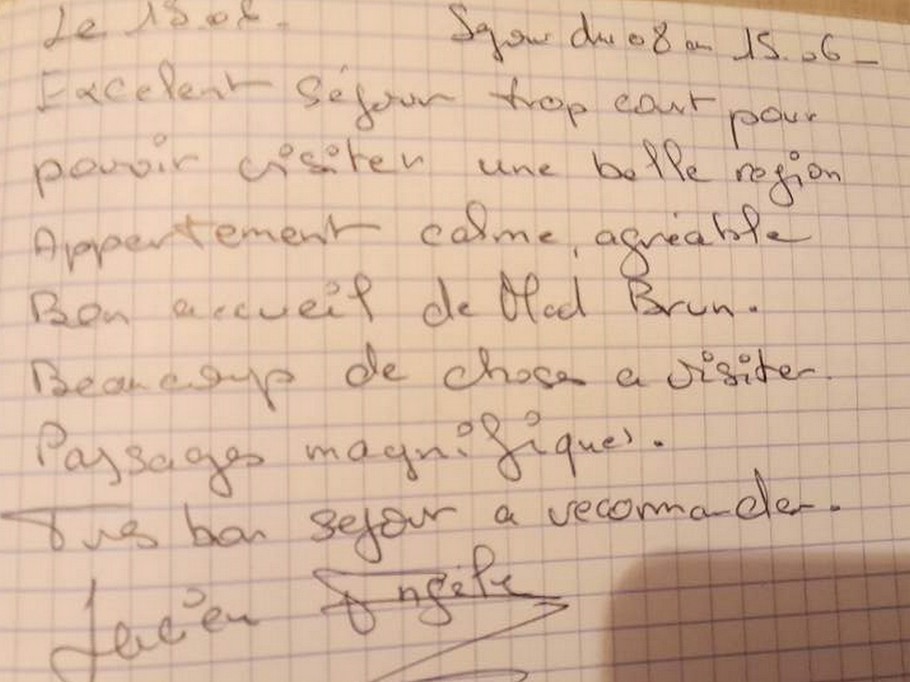 Le 15.06.
Sejour du 08 au 15.06
Excelent séjour trop court pour
pouvoir visiter une belle region
Appertement calme, agréable
Bon accueil de Mad Brun.
Beaucoup de chose a visiter.
Paysages magnifiques.
Tres bon sejour a recommander.
Lucien Angèle